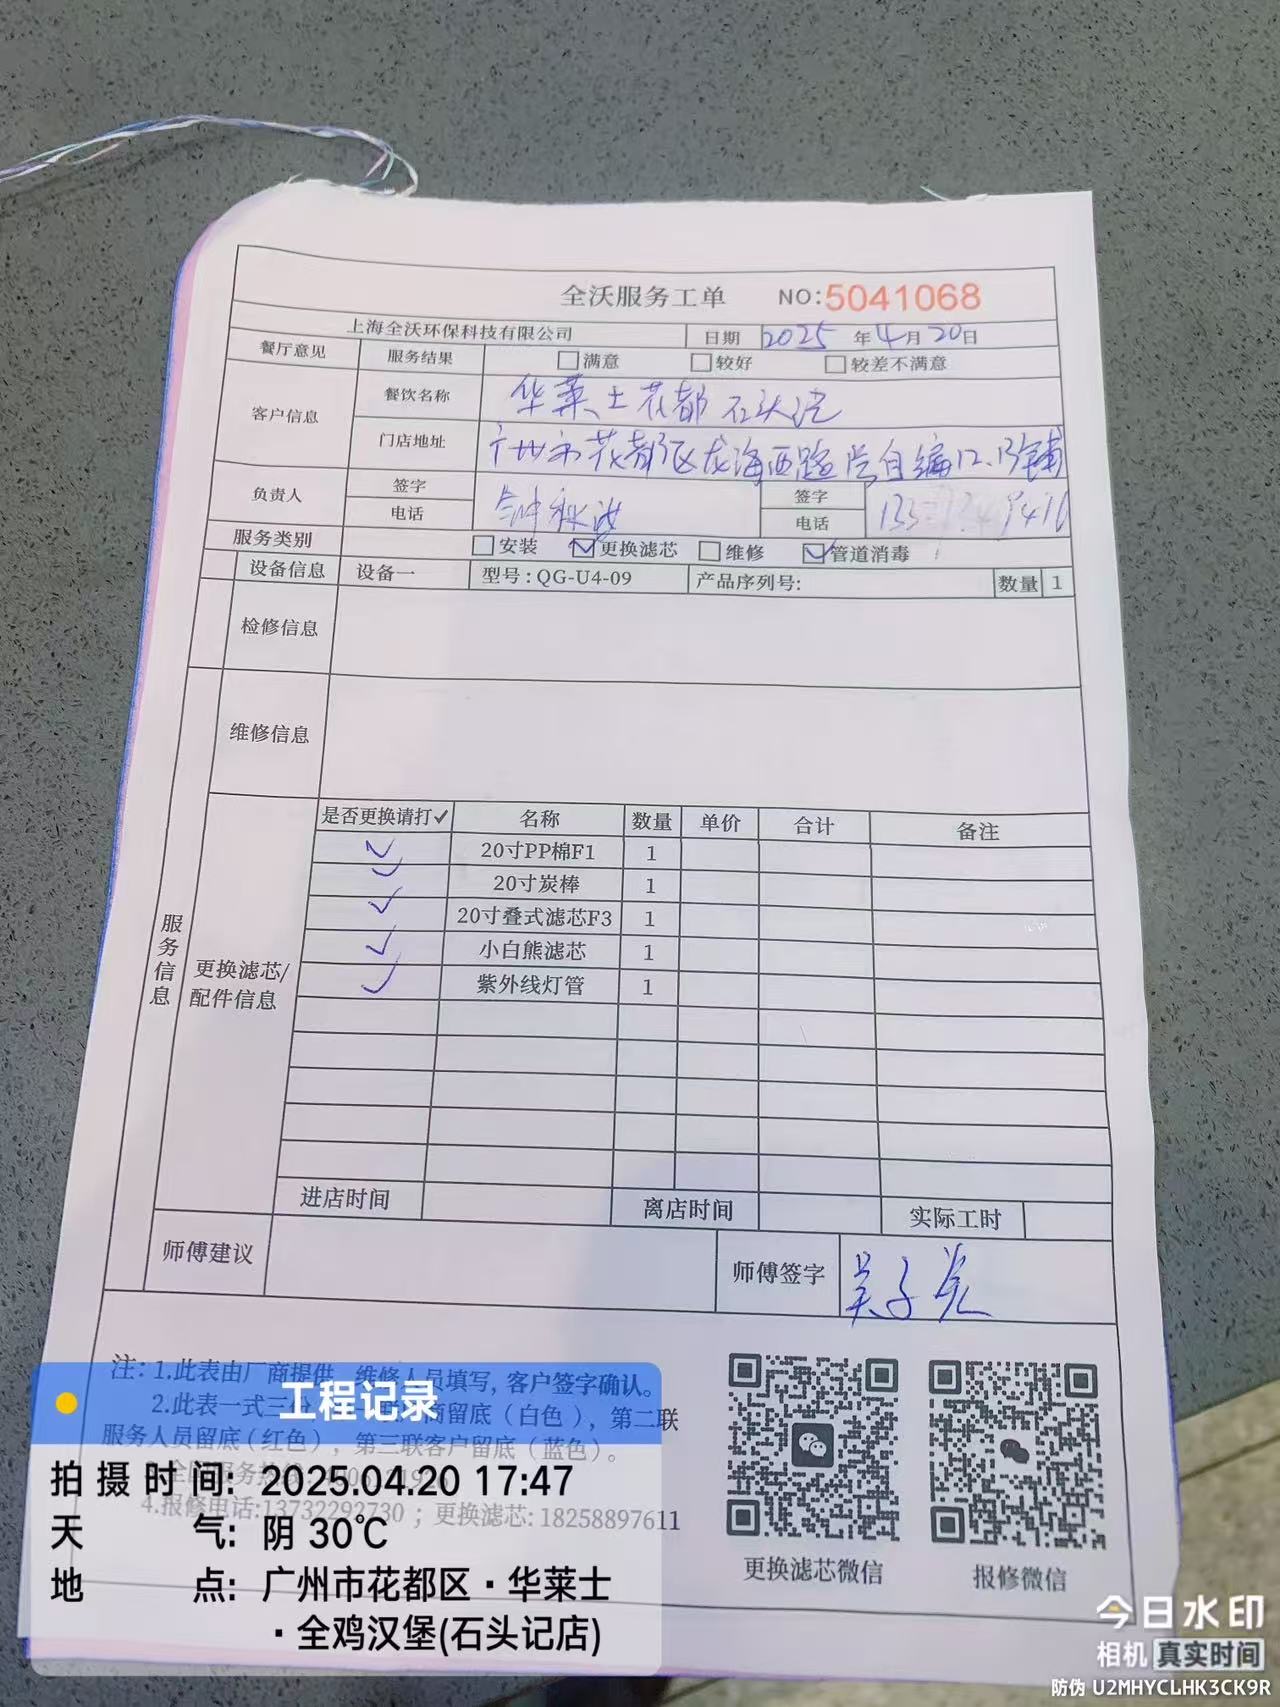 全沃服务工单 NO:5041068
上海全沃环保科技有限公司 日期 2025 年 4 月 20 日
餐厅意见 服务结果 满意 较好 较差不满意
客户信息 餐饮名称 华莱士花都石头
门店地址 广州市花都区龙海西路 自编12、13铺
负责人 签字 签字
电话 电话
服务类别 安装 更换滤芯 维修 管道消毒
设备信息 设备一 型号:QG-U4-09 产品序列号: 数量 1
检修信息
维修信息
服务信息
更换滤芯/
配件信息
是否更换请打✓ 名称 数量 单价 合计 备注
✓ 20寸PP棉F1 1
✓ 20寸炭棒 1
✓ 20寸叠式滤芯F3 1
✓ 小白熊滤芯 1
✓ 紫外线灯管 1
进店时间 离店时间 实际工时
师傅建议 师傅签字 吴子
注: 1.此表由厂商提供, 维修人员填写, 客户签字确认。
2.此表一式三份 商留底(白色), 第二联
服务人员留底(红色), 第三联客户留底(蓝色)。
全国服务热线:
4.报修电话:13732292730 ; 更换滤芯: 18258897611
更换滤芯微信 报修微信
工程记录
拍摄时间: 2025.04.20 17:47
天气: 阴 30℃
地点: 广州市花都区·华莱士
·全鸡汉堡(石头记店)
今日水印
相机 真实时间
防伪 U2MHYCLHK3CK9R